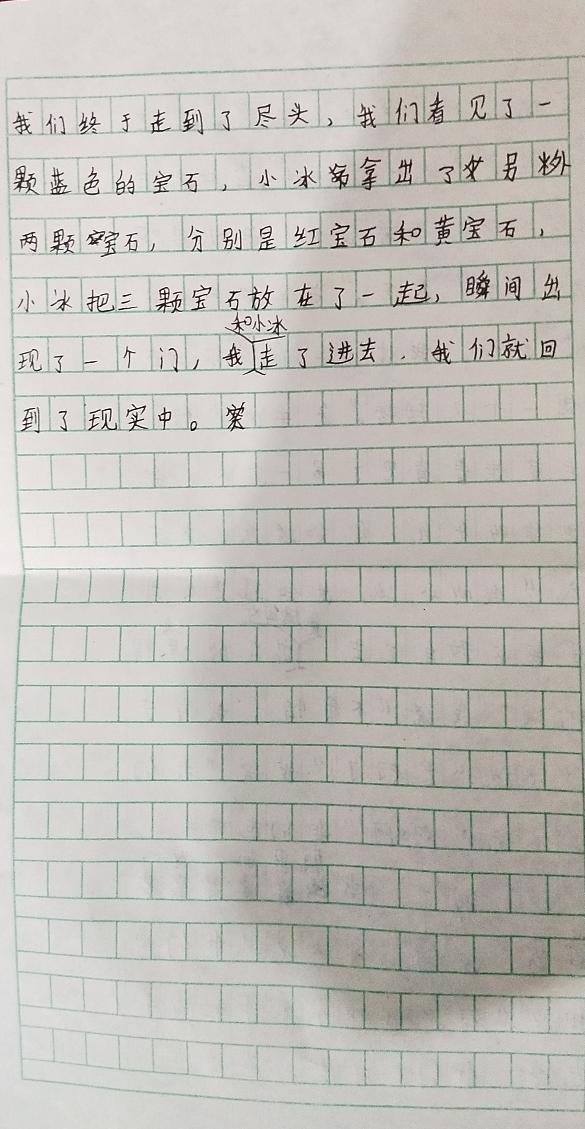 我们终于走到了尽头，我们看见了一
颗蓝色的宝石，小冰拿出了另外
两颗宝石，分别是红宝石和黄宝石，
小冰把三颗宝石放在了一起，瞬间出
和小冰
现了一个门，我走了进去．我们就回
到了现实中。